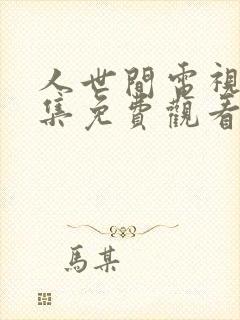 人世間電視
集免費觀看
馬某